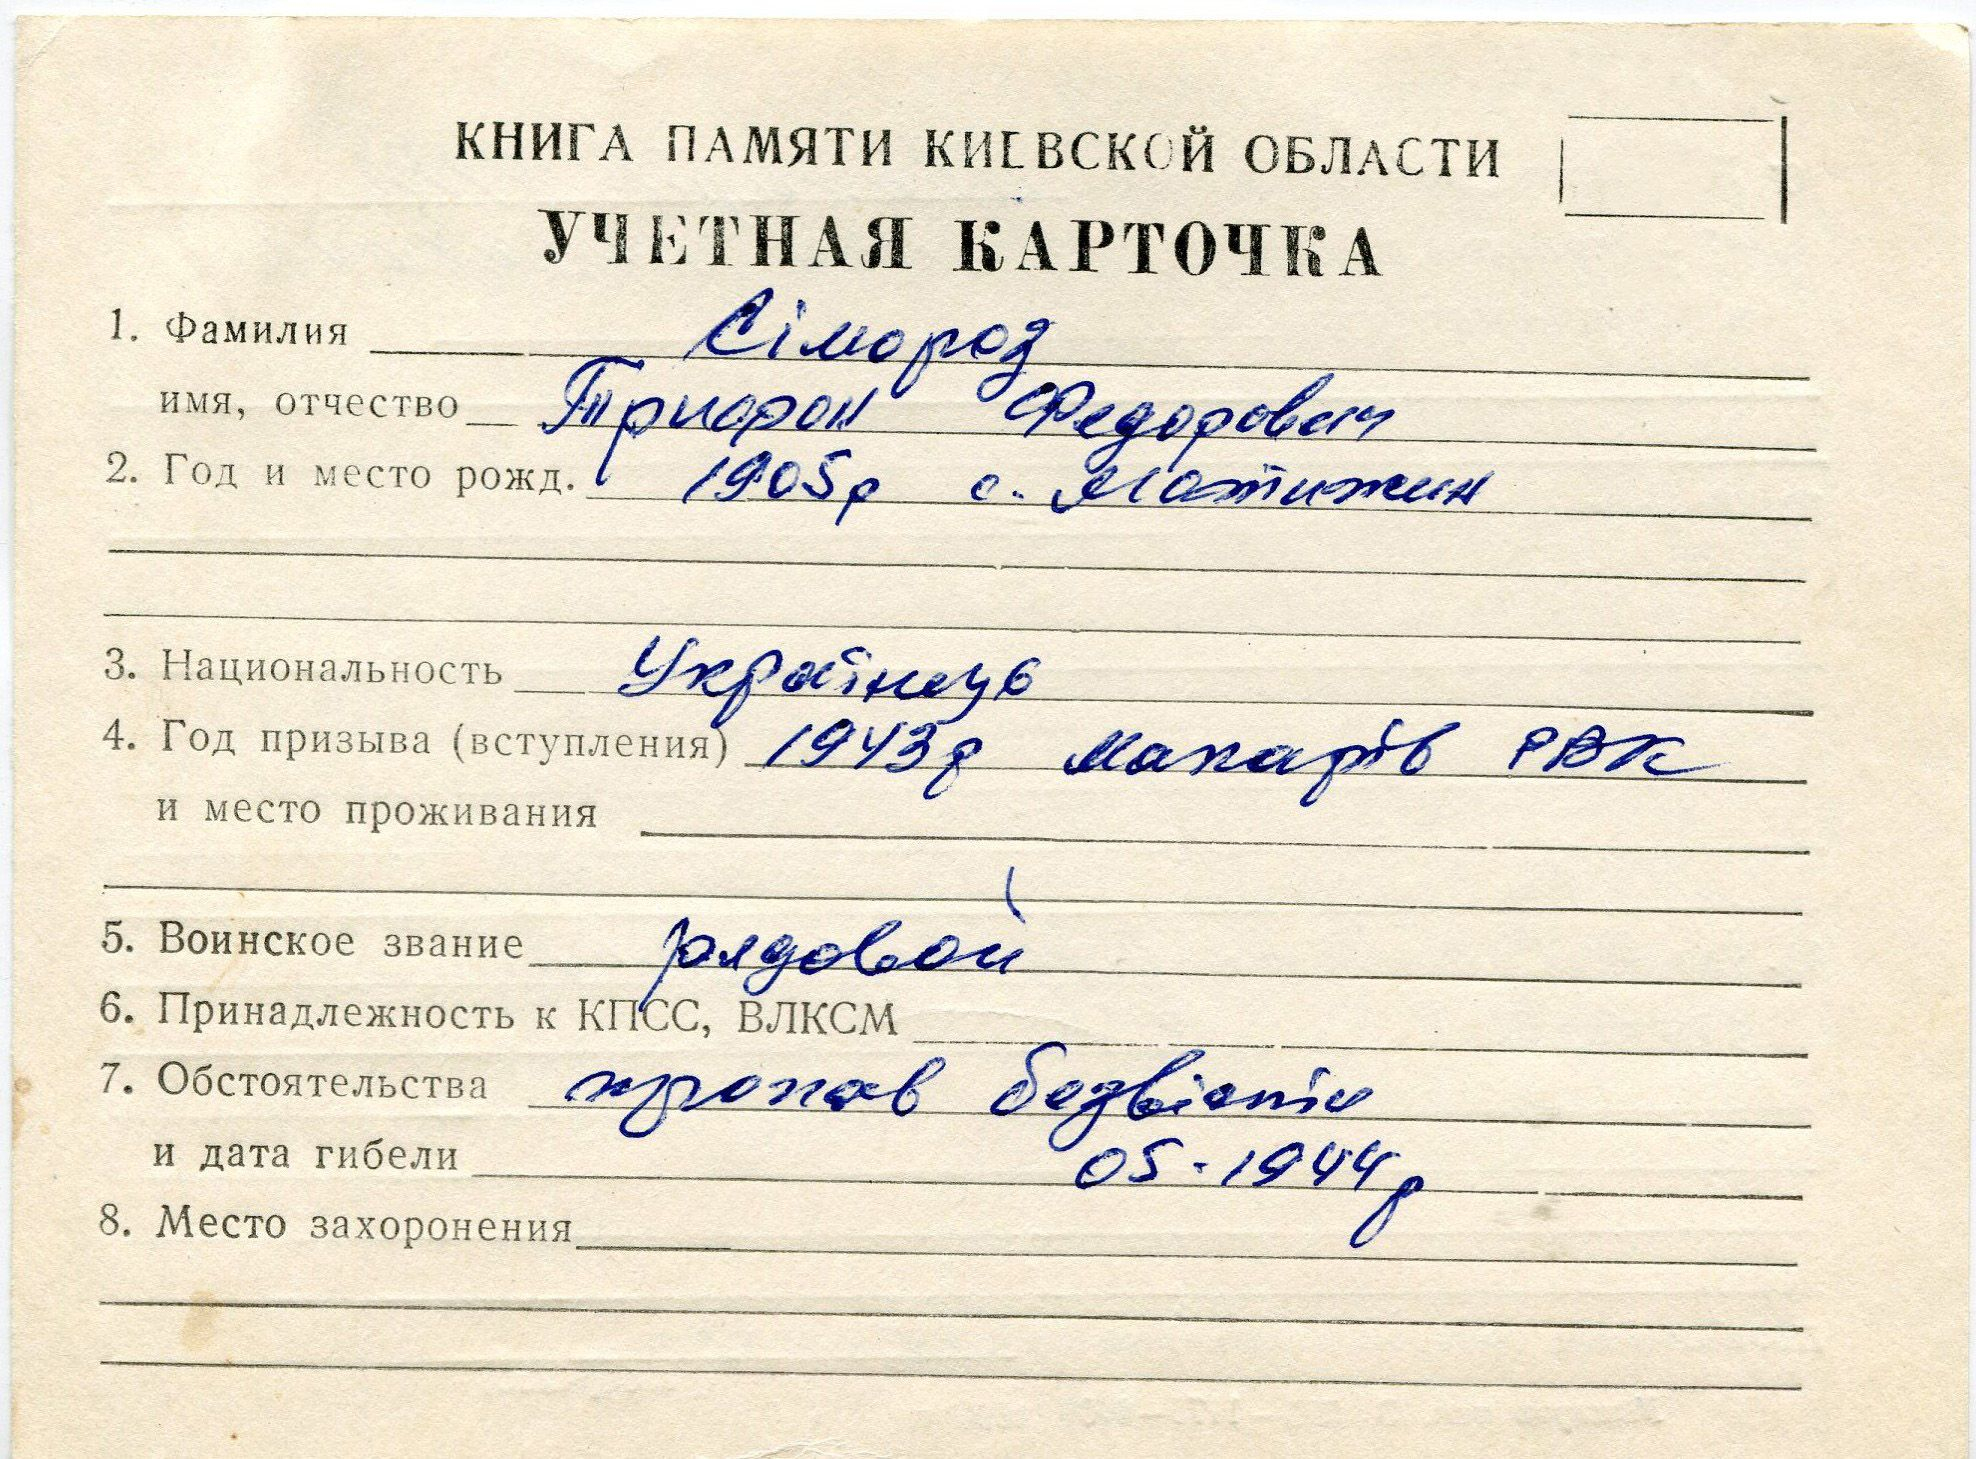 КНИГА ПАМЯТИ КИЕВСКОЙ ОБЛАСТИ
УЧЕТНАЯ КАРТОЧКА
1. Фамилия Сімород
имя, отчество Трифон Федорович
2. Год и место рожд. 1905р с. Мотижин
3. Национальность Українець
4. Год призыва (вступления) 1943р Макарів РВК
и место проживания
5. Воинское звание рядовой
6. Принадлежность к КПСС, ВЛКСМ
7. Обстоятельства пропав безвісти
и дата гибели 05-1944р
8. Место захоронения